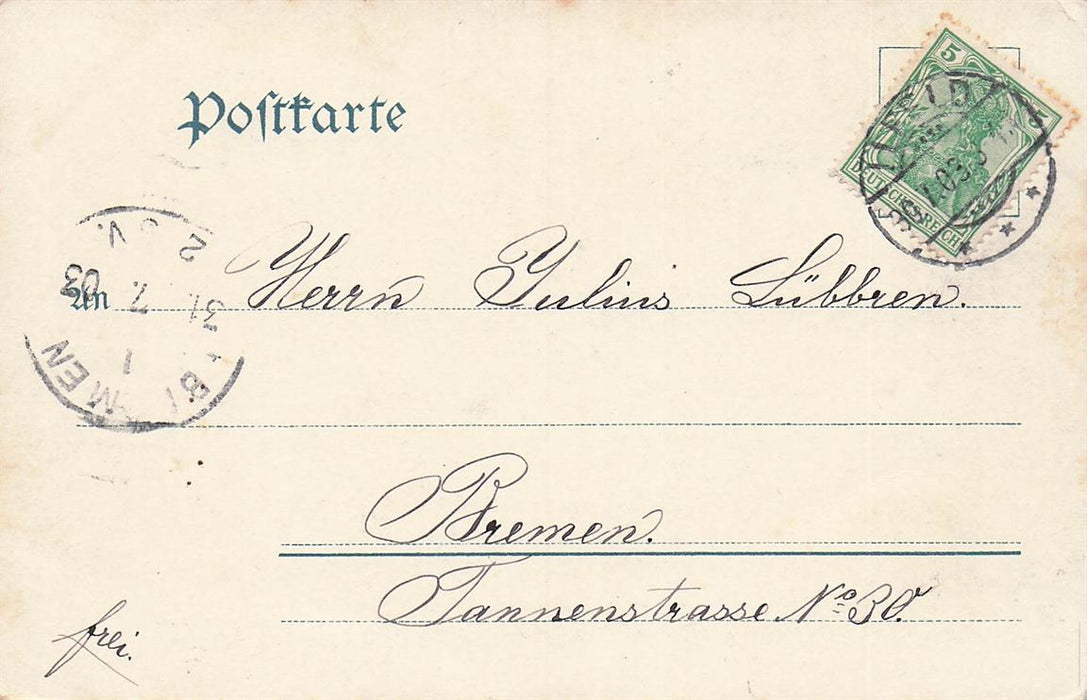 Postkarte
5
DEUTSCHES REICH
An Herrn Julius Lübbren.
Bremen.
Tannenstrasse No 30.
frei.
2
V.
31. 7. 03
1